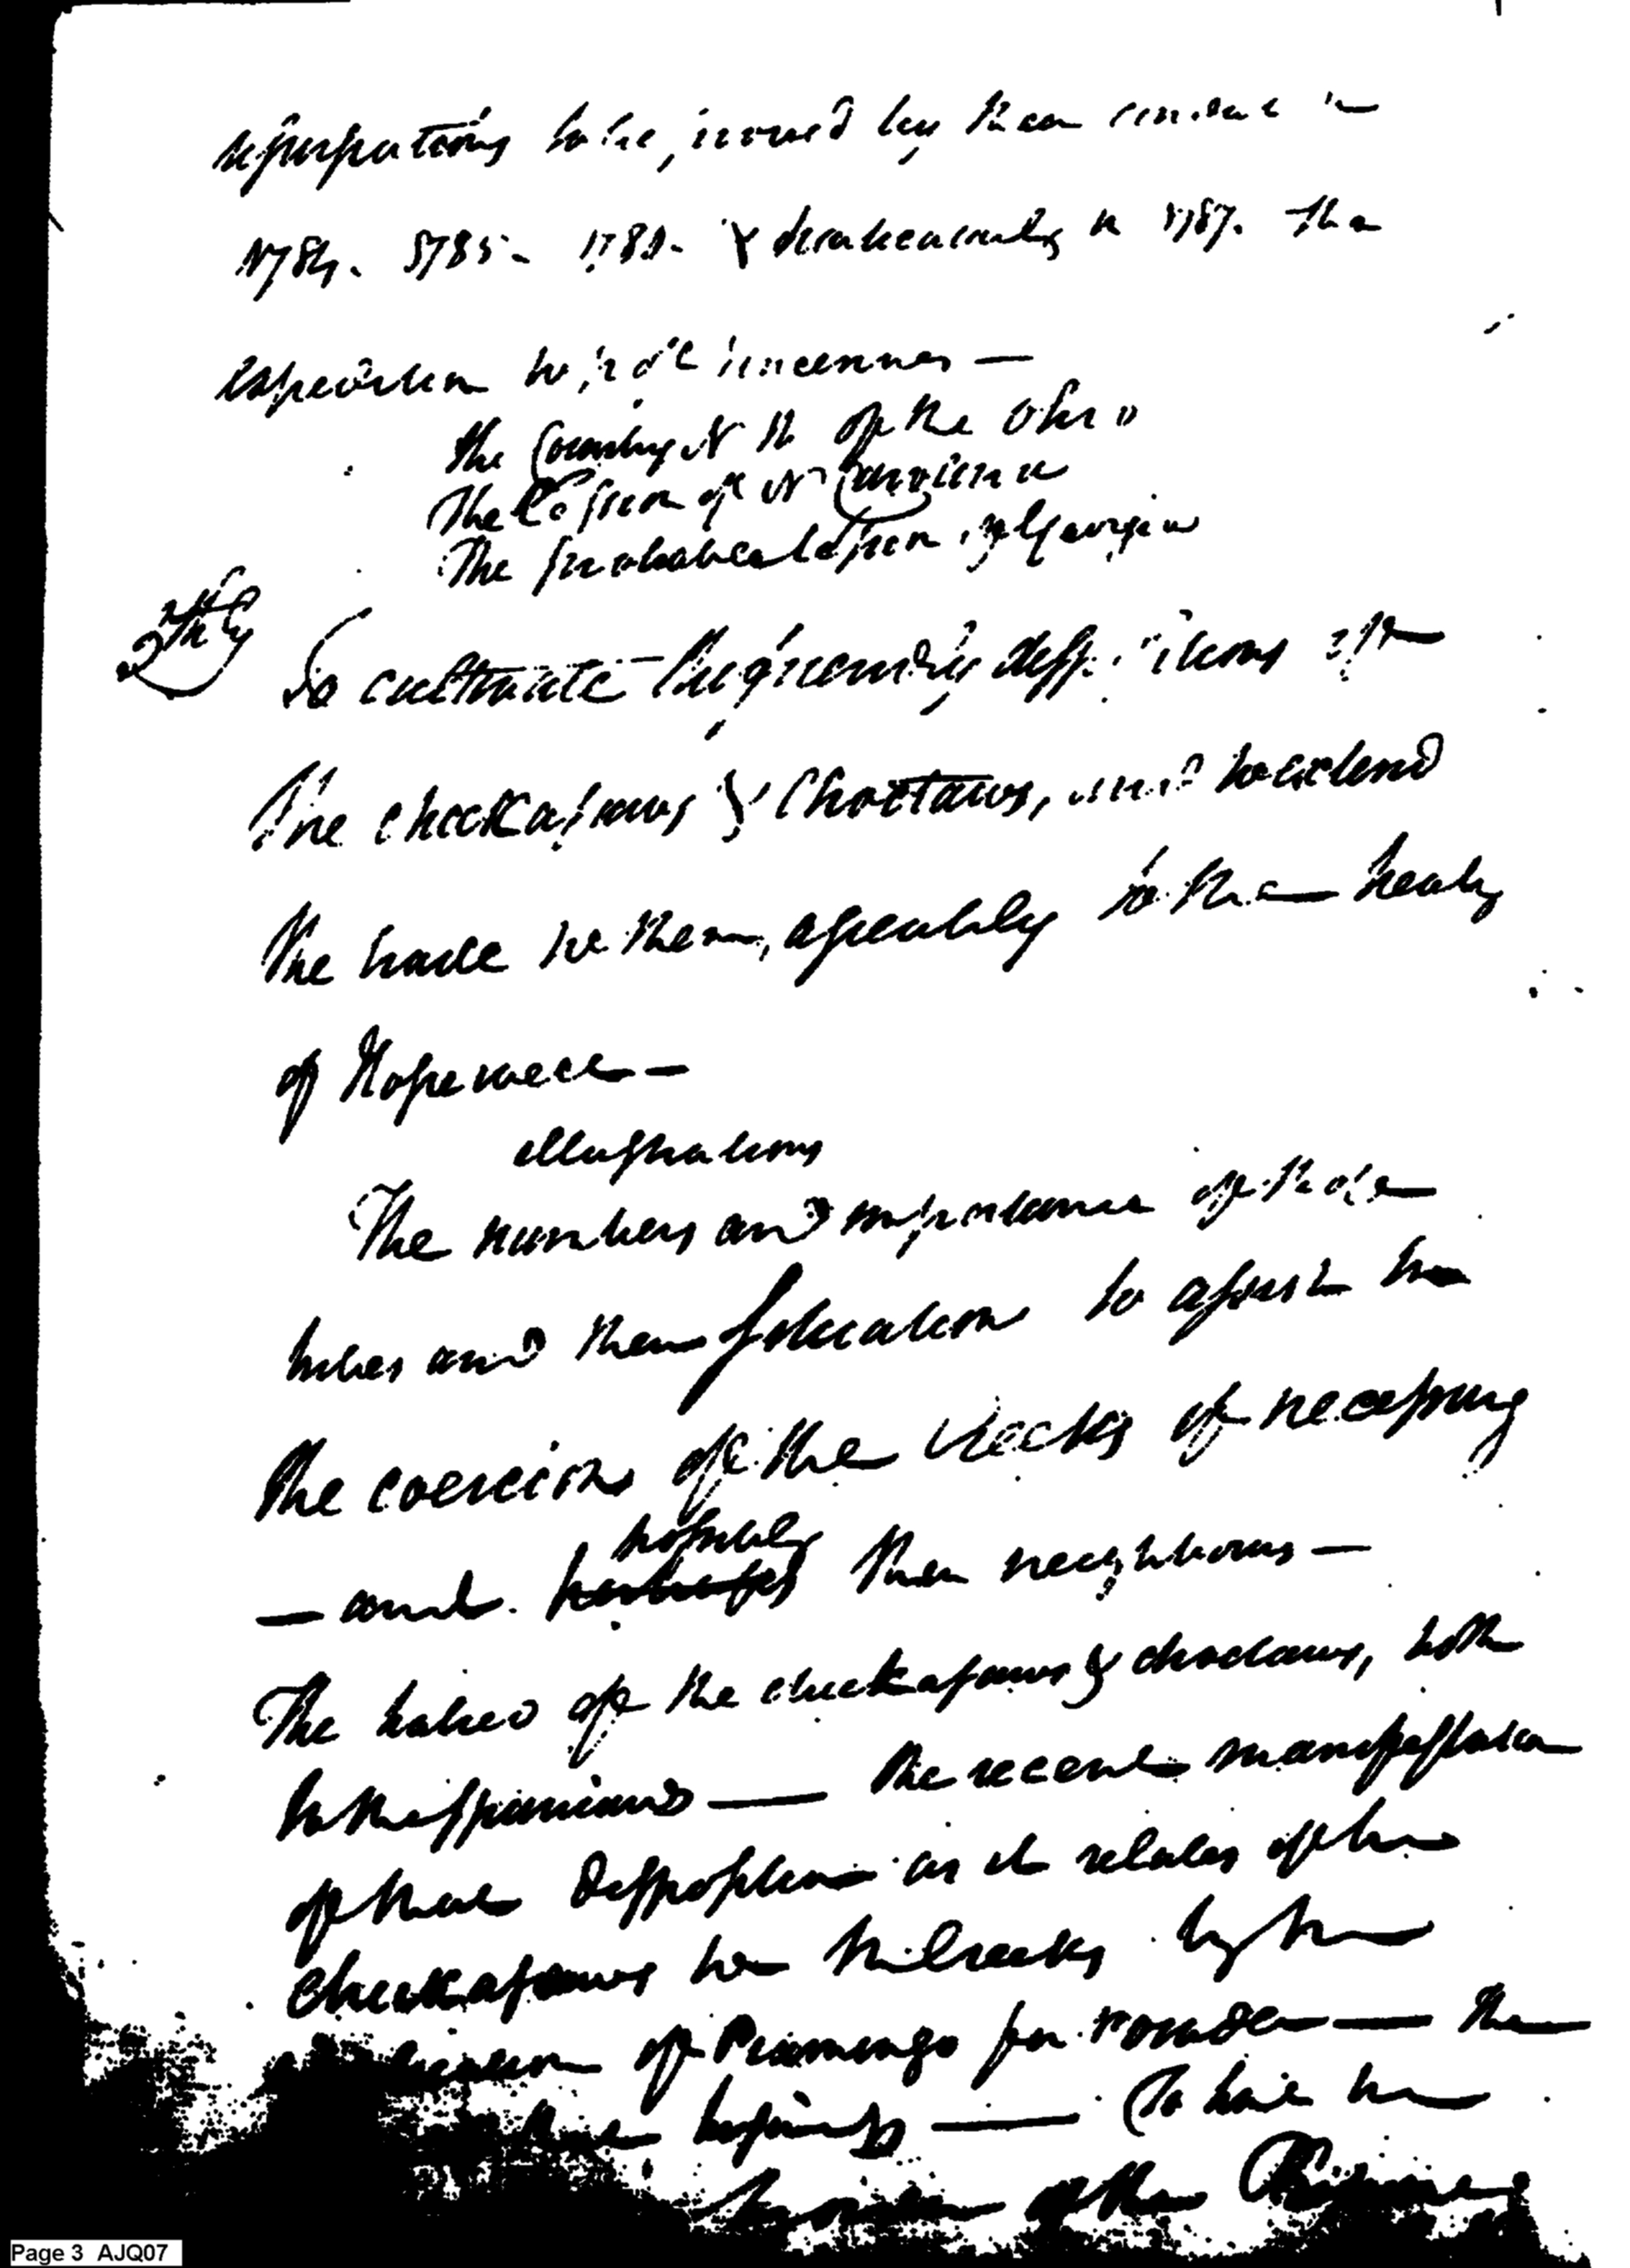 to be, issued by their conduct in
1784. 1785. 1786. & particularly in 1787. The
expedition to post Vincennes —
the Country N W of the Ohio
The Cession of N Carolina
The probable Cession of Georgia
2dly To cultivate the friendly dispositions of the
the chickasaws & Choctaws, and to extend
the trade to them, agreeably to the treaty
of Hopewell —
illustrations
The numbers and importance of those
tribes and their situation to assist in
the coercion of the Creeks if necessary
— and possibly their neighbours —
The hatred of the chickasaws & choctaws, both
to the spaniards — the recent manifestation
of that disposition as it relates of the
chickasaws to the Creeks by the
of Piamingo for powder — the
— To have the
of the
Page 3 AJQ07